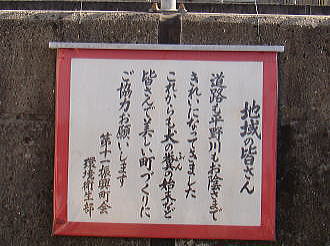 地域の皆さん
道路も平野川もお陰さまで
きれいになってきました
これからも犬の糞の始末など
ふん
皆さんで美しい町づくりに
ご協力お願いします
第十一振興町会
環境衛生部